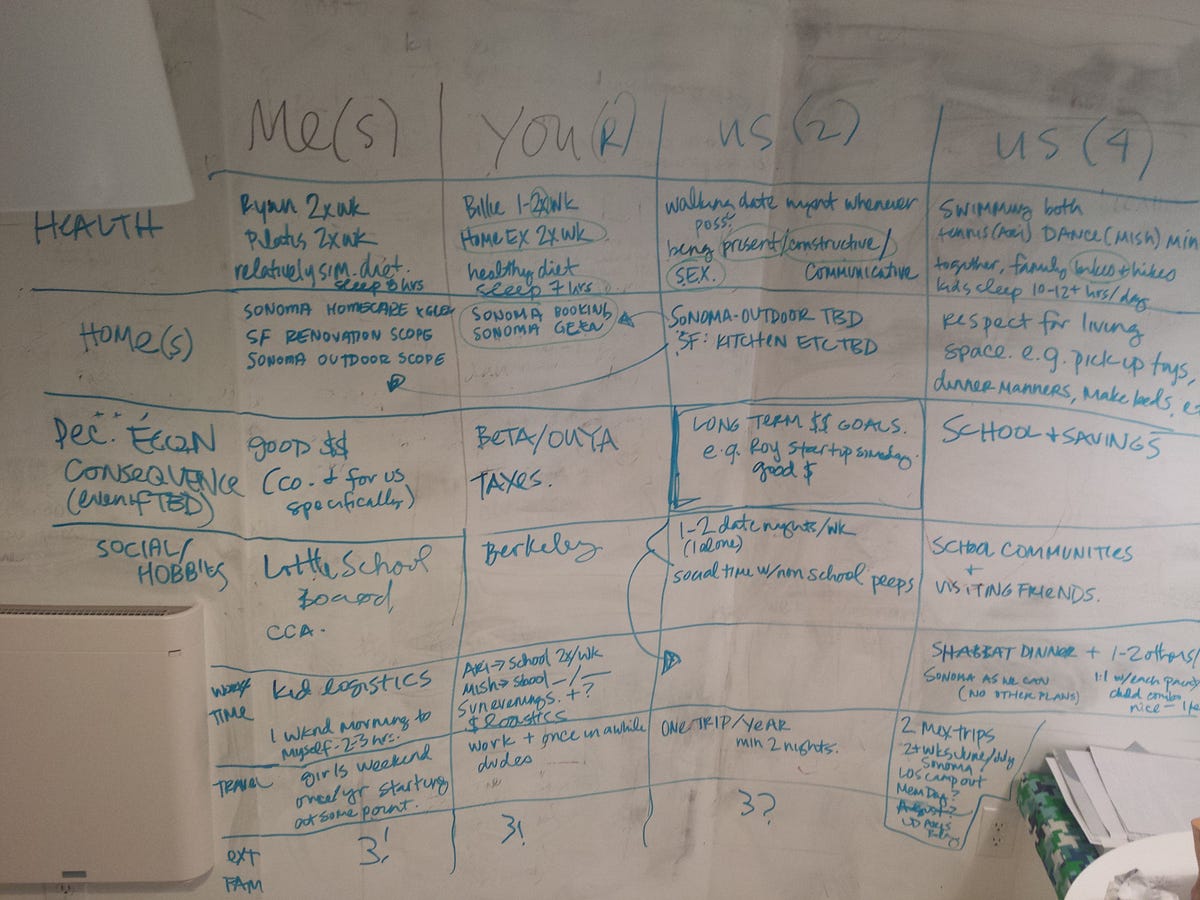 Me(s)
You(R)
us (2)
us (4)
HEALTH
Ryan 2x wk
Pilates 2x wk
relatively sim. diet.
sleep 8 hrs
Billie 1-2x wk
Home EX 2x wk
healthy diet
sleep 7 hrs
walking date night whenever
poss.
being present/constructive/
SEX. communicative
SWIMMING both
tennis(Ari) DANCE(MISH)
together, family bikes + hikes
kids sleep 10-12+ hrs/day
HOME(s)
SONOMA HOMECARE
SF RENOVATION SCOPE
SONOMA OUTDOOR SCOPE
SONOMA BOOKING
SONOMA
SONOMA-OUTDOOR TBD
SF: KITCHEN ETC TBD
Respect for living
space. e.g. pick up toys,
dinner manners, make beds,
Dec. ECON
CONSEQUENCE
(even if TBD)
good $$
(co. + for us
specifically)
BETA/OUYA
TAXES.
LONG TERM $$ GOALS.
e.g. Roy startup someday.
good $
SCHOOL + SAVINGS
SOCIAL/
HOBBIES
Little School
Board,
CCA.
Berkeley
1-2 date nights/wk
(1 alone)
social time w/non school peeps
SCHOOL COMMUNITIES
+
VISITING FRIENDS.
TIME
kid logistics
1 wknd morning to
myself. 2-3 hrs.
ARI → School 2x/wk
Mish → school _/_
Sun evenings. + ?
$ logistics
SHABBAT DINNER + 1-2 others/
SONOMA AS WE CAN
(NO OTHER PLANS)
1:1 w/each parent
child combo
nice -
TRAVEL
girls weekend
once/yr starting
at some point.
work + once in a while
dudes
ONE TRIP/YEAR
min 2 nights.
2 Mex trips
2+ wks June/July
Sonoma
LOS camp out
Mem Day?
August?
ext
FAM
3!
3!
3?